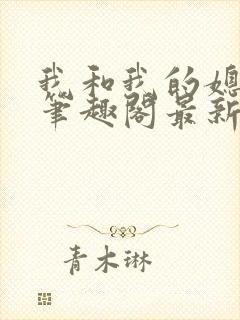 我和我的媳
笔趣阁最新
青木琳